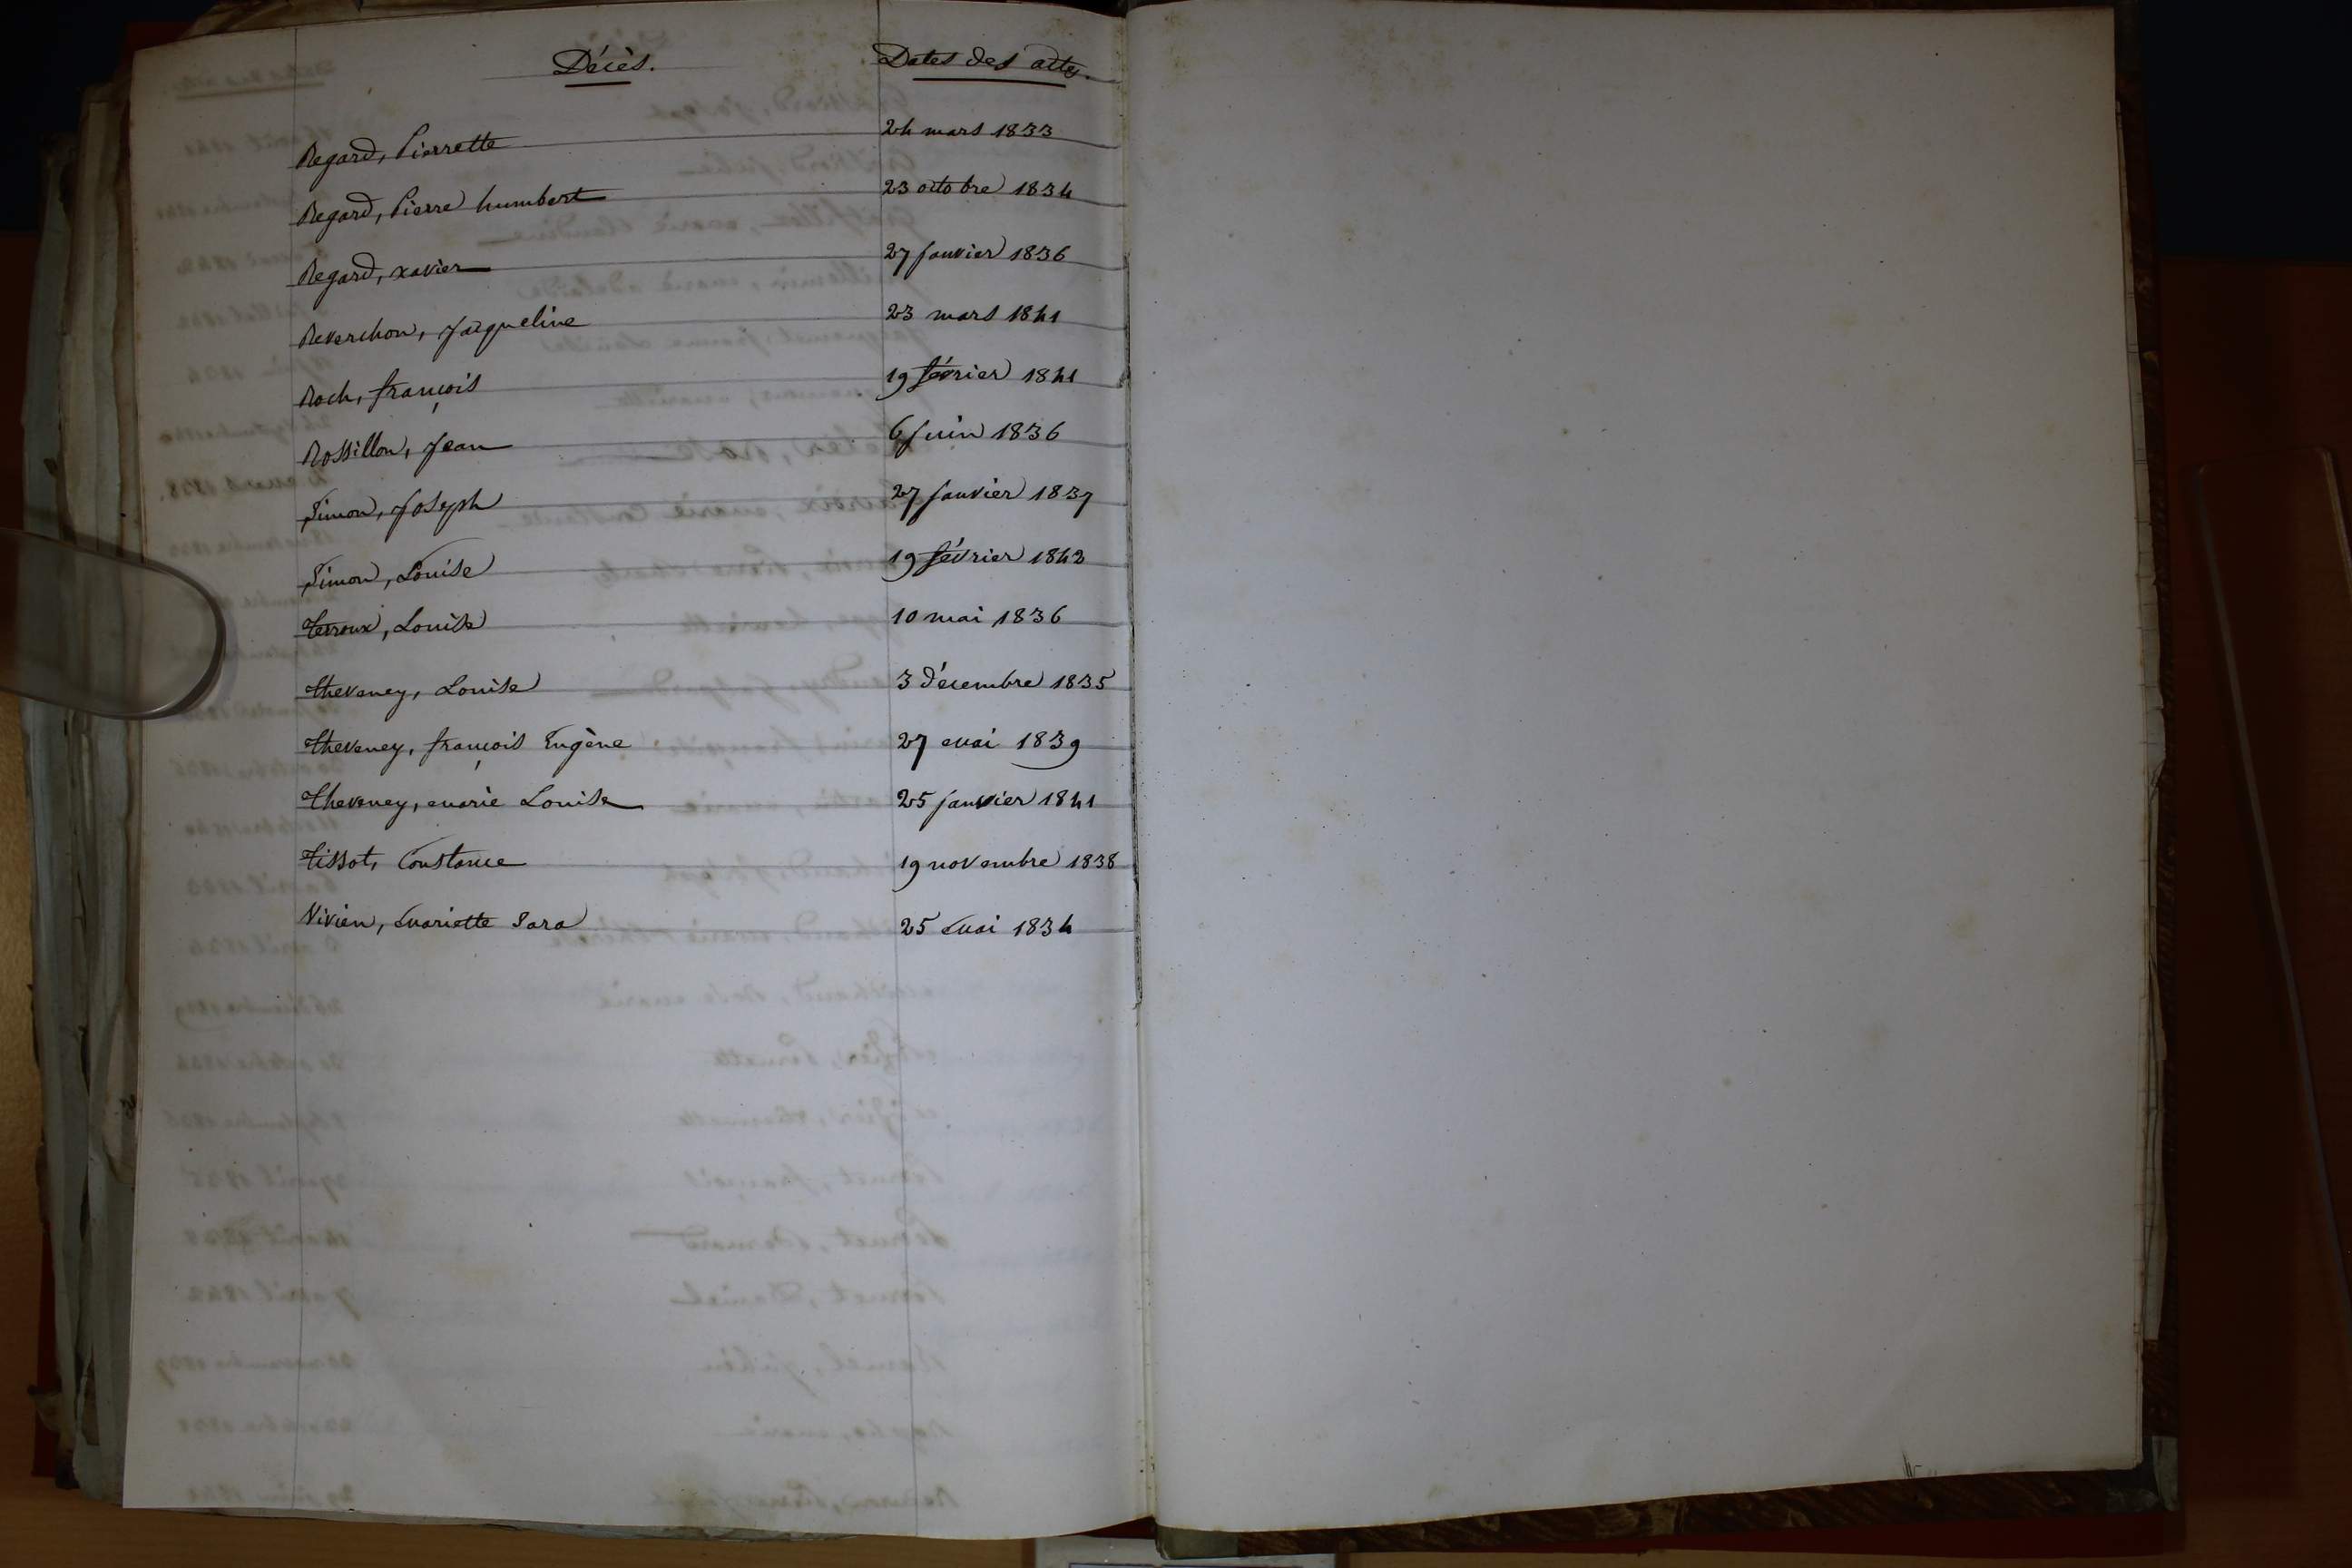 Décès. Dates des actes.
Regard, Pierrette 24 mars 1833
Regard, Pierre humbert 23 octobre 1834
Regard, xavier 27 janvier 1836
Reverchon, Jacqueline 23 mars 1841
Roch, françois 19 février 1841
Rossillon, Jean 6 juin 1836
Simon, Joseph 27 janvier 1837
Simon, Louise 19 février 1842
Terroux, Louise 10 mai 1836
Theveney, Louise 3 décembre 1835
Theveney, françois Eugène 27 mai 1839
Theveney, marie Louise 25 janvier 1841
Tissot, Constance 19 novembre 1838
Vivien, Mariette Sara 25 Mai 1834